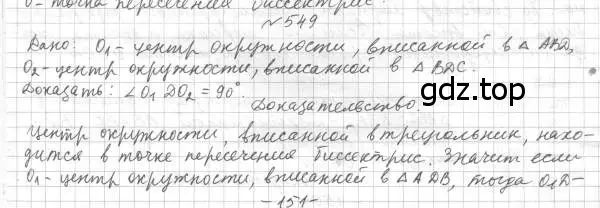 О- точка пересечения биссектрис.
№549
Дано: O₁-центр окружности, вписанной в △ ABD,
O₂-центр окружности, вписанной в △ BDC.
Доказать: ∠O₁ DO₂ = 90°.
Доказательство
gdz.top
Центр окружности, вписанной в треугольник, нахо-
дится в точке пересечения биссектрис. Значит если
O₁-центр окружности, вписанной в △ ADB, тогда O₁D-
-151-